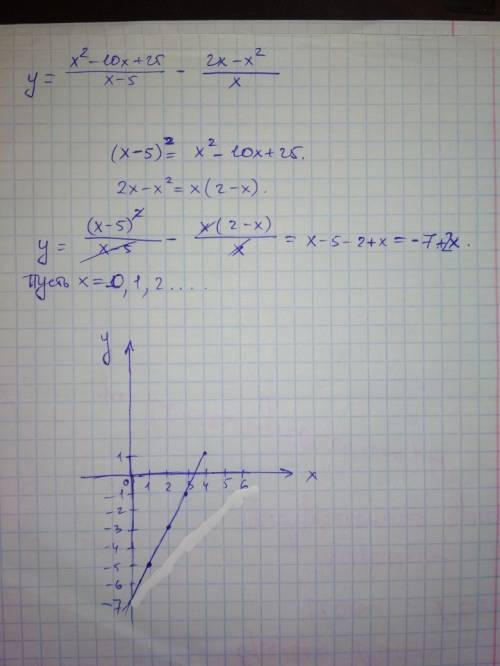 y = (x² - 10x + 25)/(x - 5) - (2x - x²)/x
(x-5)² = x² - 10x + 25.
2x - x² = x(2-x).
y = (x-5)²/(x-5) - x(2-x)/x = x - 5 - 2 + x = -7 + 2x.
Пусть x = 0, 1, 2 ....
y
1
0 1 2 3 4 5 6 x
-1
-2
-3
-4
-5
-6
-7